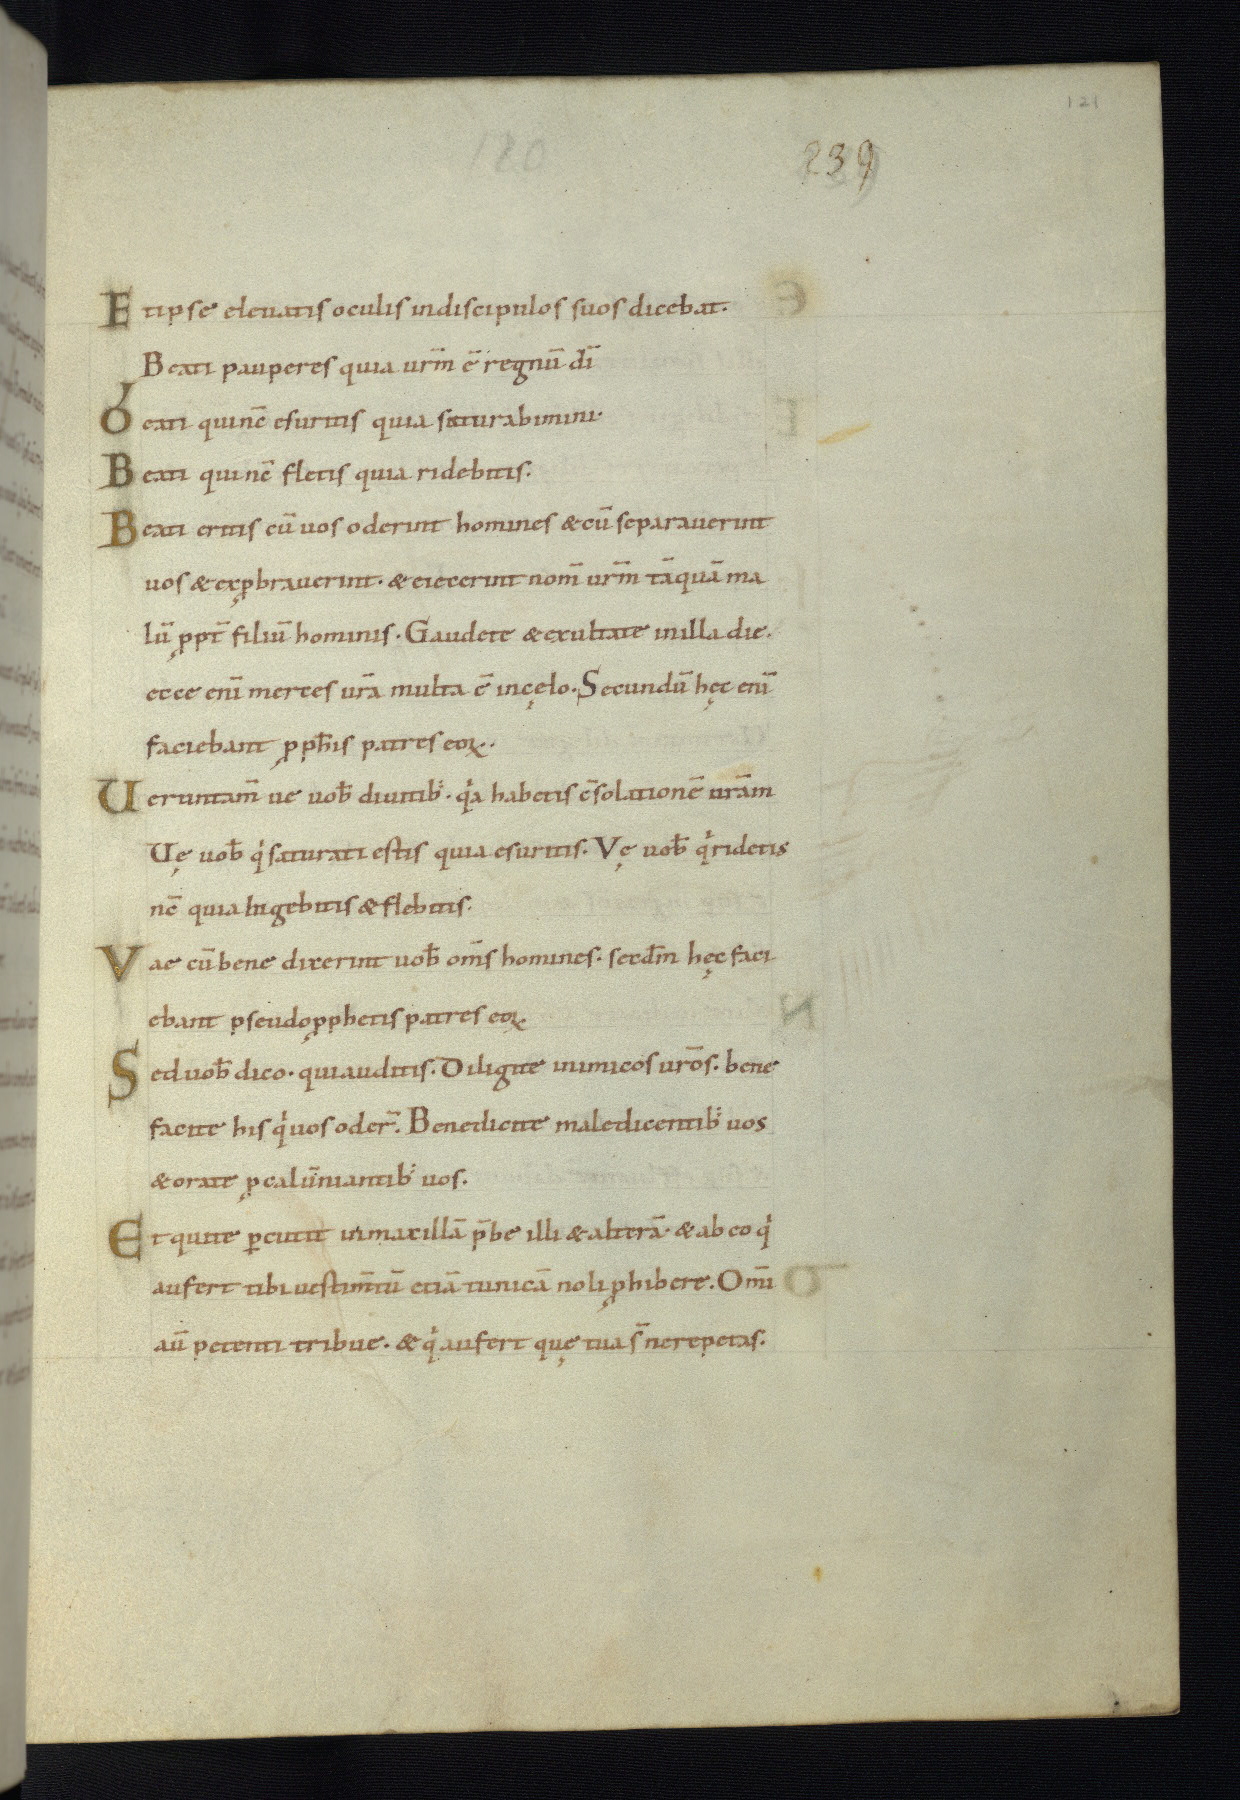 121
239
Et ipse eleuatis oculis in discipulos suos dicebat.
Beati pauperes quia urm̄ ē regnū dī
Beati qui nc̄ esuritis quia saturabimini.
Beati qui nc̄ fletis quia ridebitis.
Beati eritis cū uos oderint homines & cū separauerint
uos & exꝓbrauerint. & eiecerint nom̄ urm̄ tāquā ma
lū ꝓpt̄ filiū hominis. Gaudete & exultate in illa die.
ecce enī merces ur̄a multa ē in cęlo. Secundū hęc enī
faciebant ꝓph̄is patres eoꝝ.
Ueruntam̄ ue uob̄ diuitib; qͥa habetis c̄solationē ur̄am
Uę uob̄ qͥ saturati estis quia esuritis. Vę uob̄ qͥ ridetis
nc̄ quia lugebitis & flebitis.
Vae cū bene dixerint uob̄ om̄s homines. secd̄m hęc faci
ebant pseudoꝓphetis patres eoꝝ.
Sed uob̄ dico. qui auditis. Diligite inimicos ur̄os. bene
facite his qͥ uos oder̄. Benedicite maledicentib; uos
& orate ꝓ calūniantib; uos.
Et qui te ꝑcutit in maxillā p̄be illi & alterā. & ab eo qͥ
aufert tibi uestim̄tū etiā tunicā noli ꝓhibere. Omī
aū petenti tribue. & qͥ aufert quę tua s̄ ne repetas.